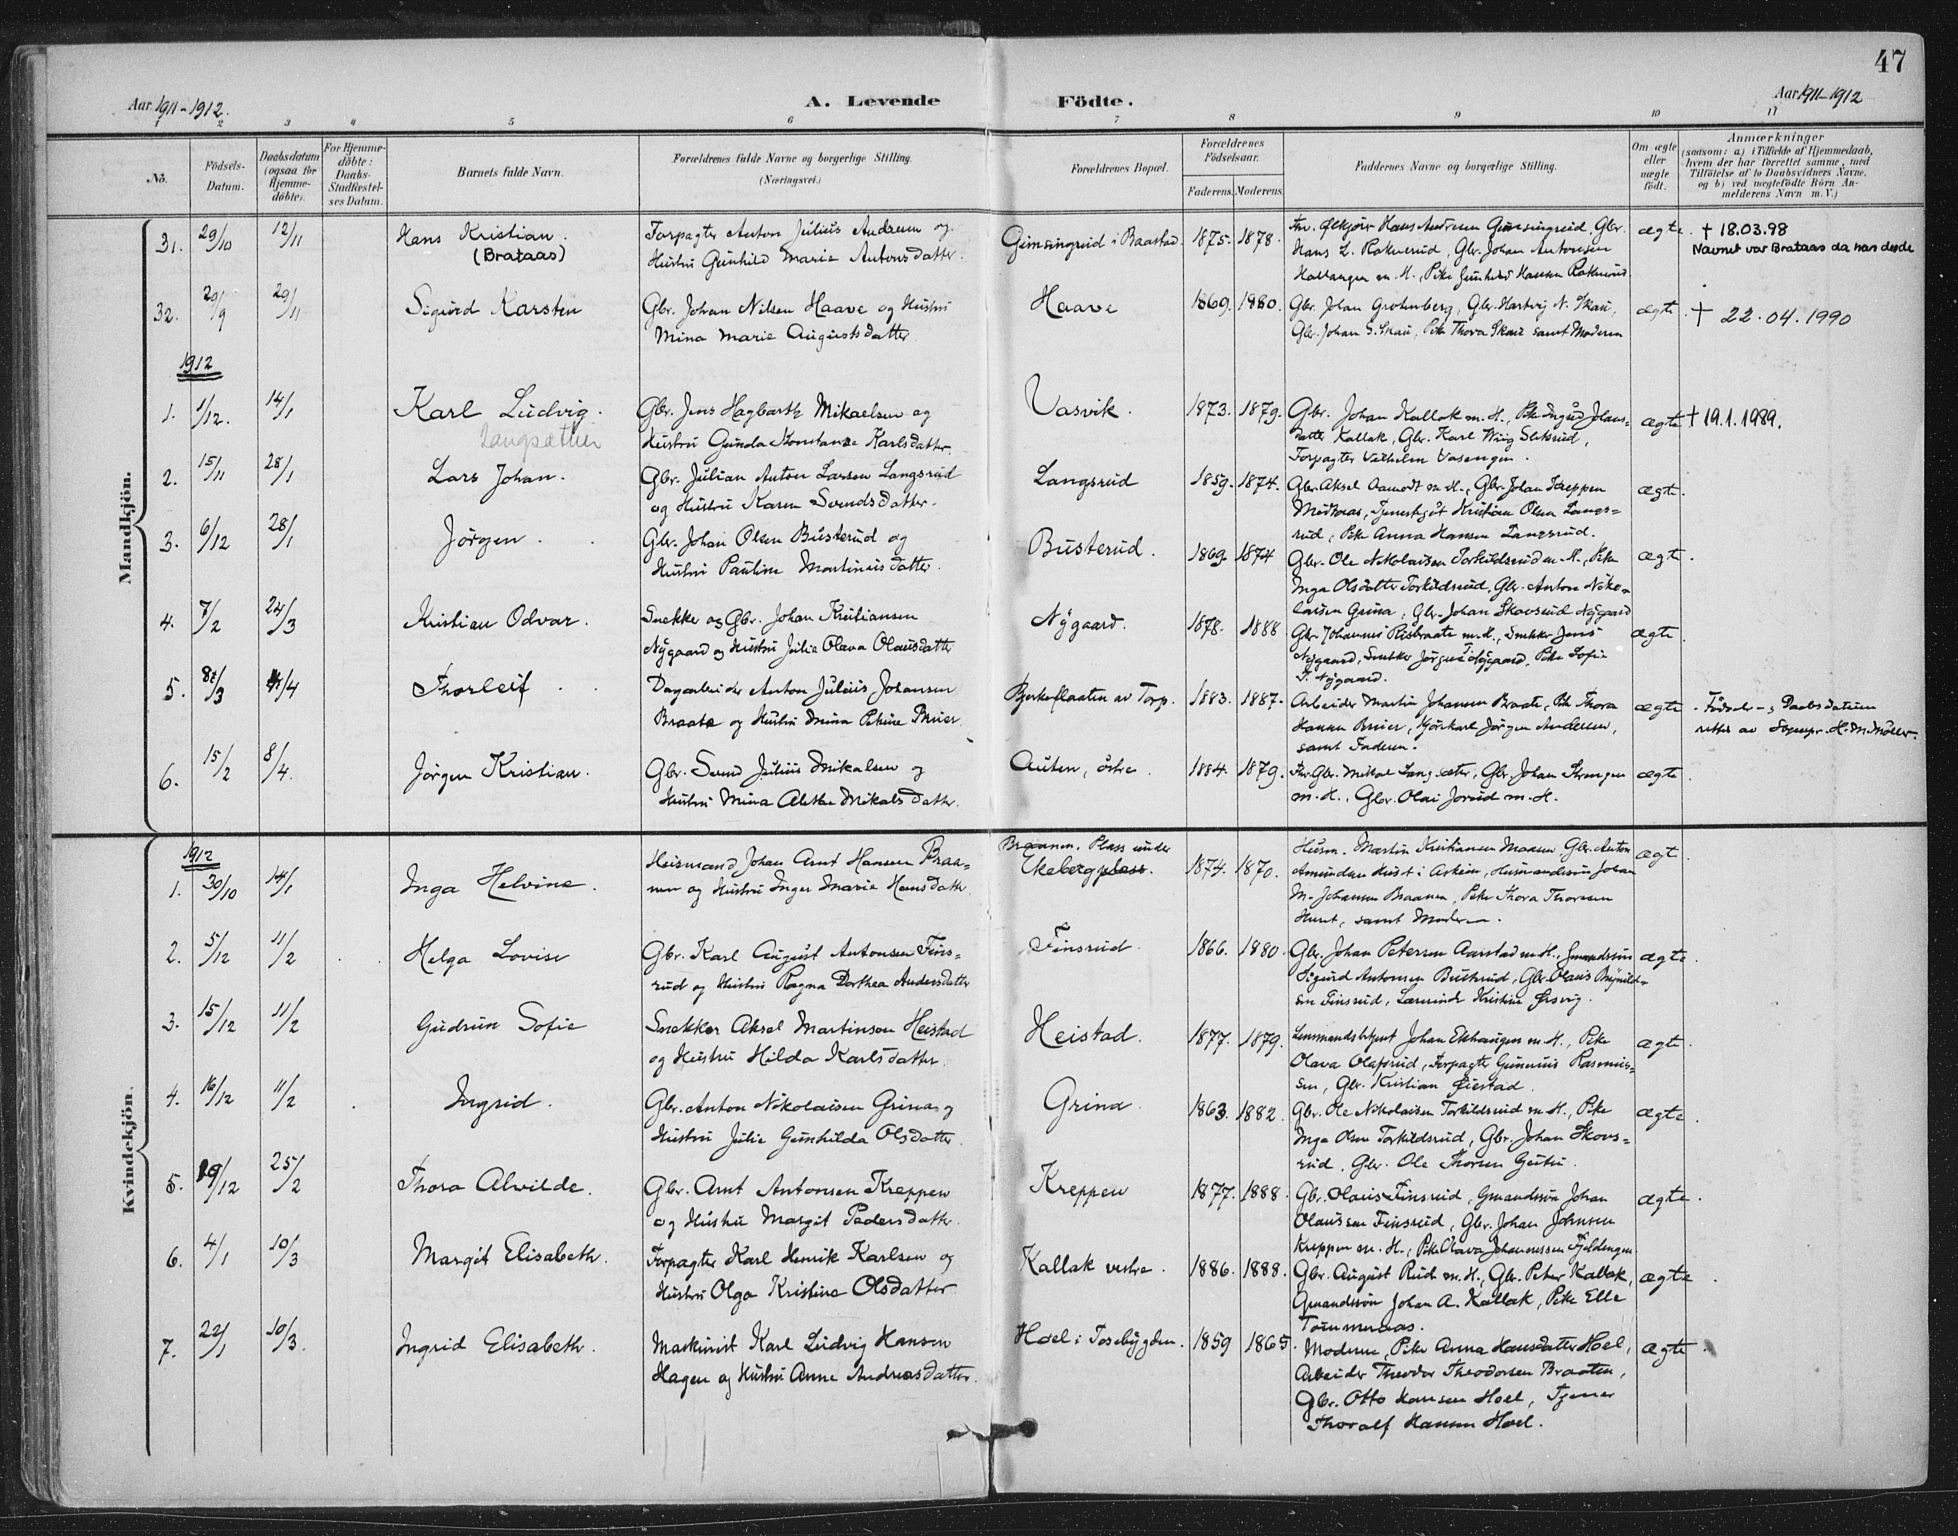 47
Aar 1911-1912.
A. Levende
Födte.
Aar 1911-1912
1 2 3 4 5 6 7 8 9 10 11
No.
Födsels-Datum.
Daabsdatum (ogsaa for Hjemme-döbte).
For Hjemme-döbte: Daabs-Stadfæstel-ses Datum.
Barnets fulde Navn.
Forældrenes fulde Navne og borgerlige Stilling.
(Næringsvei.)
Forældrenes Bopæl.
Forældrenes Födselsaar.
Faderens. Moderens.
Faddernes Navne og borgerlige Stilling.
Om ægte eller uægte födt.
Anmærkninger
(saasom: a) i Tilfælde af Hjemmedaab,
hvem der har forrettet samme, med
Tilföielse af to Daabsvidners Navne,
og b) ved uegtefödte Börn An-
melderens Navn m. V.)
Mandkjön.
31. 29/10 12/11 Hans Kristian. Forpagter Anton Julius Andersen og Gimsingrud i Baastad. 1875. 1878. Hans Andersen Gimsingrud, Gbr. ægte. † 18.03.98
(Brataas) Hustru Gunhild Marie Antonsdatter. Hans L. Rakeverud, Gbr. Johan Antonsen Navnet var Brataas da han døde
Hallangen m. H., Pike Gunhild Hansen Rakeverud.
32. 29/9 29/11 Sigurd Karsten Gbr. Johan Nilsen Haave og Hustru Haave 1869. 1880. Gbr. Johan Grotenberg, Gbr. Hartvig N. Skau, ægte. † 22.04.1990
Mina Marie Augustsdatter Gbr. Johan S. Skau, Pike Thora Skau samt Moderen
1912
1. 1/12. 14/1 Karl Ludvig. Gbr. Jens Hagbarth Mikaelsen og Vasvik. 1873. 1879. Gbr. Johan Kallak m. H., Pike Ingrid Johans- ægte † 19.1.1989.
Langsæther Hustru Gunda Konstanse Karlsdatter. datter Kallak, Gbr. Karl Wiig Sletsrud,
Forpagter Vilhelm Vasengen.
2. 15/11 28/1 Lars Johan. Gbr. Julian Anton Larsen Langsrud Langsrud 1859. 1874. Gbr. Aksel Aamodt m. H., Gbr. Johan Kreppen ægte.
og Hustru Karen Svendsdatter. Tjenestegut Kristian Olsen Langs-
rud, Pike Anna Hansen Langsrud.
3. 6/12 28/1 Jörgen. Gbr. Johan Olsen Busterud og Busterud. 1869. 1874 Gbr. Ole Nikolaisen Torkildsrud m. H., Pike ægte.
Hustru Pauline Martiniusdatter. Inga Olsdatter Torkildsrud, Gbr. Anton Niko-
laisen Grina, Gbr. Johan Skovsrud
4. 7/2 24/3 Kristian Odvar. Snekker og Gbr. Johan Kristiansen Nygaard. 1878. 1888 Gbr. Johannes Risbraate m. H., Snekker Jens Nygaard ægte.
Nygaard og Hustru Julie Olava Olausdatter Nygaard, Snekker Jörgen Nygaard, Pike Sofie
J. Nygaard.
5. 8/3 4/4 Thorleif. Dagarbeider Anton Julius Johansen Bjerkeflaaten av Torp. 1883. 1887. Arbeider Martin Johansen Braate, Pike Thora ægte. Födsel- og Daabsdatum
Braate og Hustru Mina Petrine Bruer. Hansen Bruer, Kjörekarl Jörgen Andersen, rettet av Sognepr. H. M. Möller.
samt Faderen.
6. 15/2 8/4. Jörgen Kristian. Gbr. Svend Julius Mikalsen og Auten, östre. 1884. 1879. Gbr. Mikal Langsæter, Gbr. Johan Strengen ægte.
Hustru Mina Alethe Mikalsdatter. m. H., Gbr. Olai Jorud m. H.
Kvindekjön.
1912
1. 30/10 14/1 Inga Helvine. Husmand Johan Arnt Hansen Braa- Braanen. Plass under 1874. 1870. Husm. Martin Kristiansen Moasen Gbr. Anton ægte.
nen og Hustru Inger Marie Hansdatter. Ekeberg plass. Amundsen Hust i Askim, Husmandssön Johan
M. Johansen Braanen, Pike Thora Thoresen
samt Moderen.
2. 5/12 11/2 Helga Lovise Gbr. Karl August Antonsen Fins- Finsrud. 1866. 1880. Gbr. Johan Petersen Aarstad m. H., Gmandssön ægte.
rud og Hustru Ragna Dorthea Andersdatter Sigurd Antonsen Busterud, Gbr. Olaus Brynild-
sen Finsrud, Lærerinde Kristine Ørsvig.
3. 15/12 11/2 Gudrun Sofie Snekker Aksel Martinsen Heistad Heistad. 1877. 1879. Johan Ekhaugen m. H., Pike ægte.
og Hustru Hilda Karlsdatter. Olava Olafsrud, Forpagter Gunerius Rasmus-
sen, Gbr. Kristian Øiestad.
4. 16/12 11/2 Ingrid. Gbr. Anton Nikolaisen Grina og Grina. 1863. 1882. Gbr. Ole Nikolaisen Torkildsrud m. H., Pike ægte.
Hustru Julie Gunhilda Olsdatter. Inga Olsen Torkildsrud, Gbr. Johan Skovs-
rud, Gbr. Ole Thoresen Gutu.
5. 19/12 25/2 Thora Alvilde. Gbr. Arnt Antonsen Kreppen Kreppen 1877. 1888. Gbr. Olaus Finsrud, Gmandssön Johan ægte.
og Hustru Margit Pedersdatter. Olaussen Finsrud, Gbr. Johan Johnsen
Kreppen m. H., Pike Olava Johannessen Fjeldengen
6. 4/1 10/3 Margit Elisabeth. Forpagter Karl Henrik Karlsen og Kallak vestre. 1886. 1888. Gbr. August Rud m. H., Gbr. Peter Kallak, ægte.
Hustru Olga Kristine Olsdatter Gmandssön Johan A. Kallak, Pike Elle
Tommeraas.
7. 22/1 10/3. Ingrid Elisabeth. Maskinist Karl Ludvig Hansen Hoel i Tosebygden. 1859 1865. Moderen, Pike Anna Hansdatter Hoel, ægte.
Hagen og Hustru Anne Andreasdatter. Arbeider Theodor Theodorsen Braaten,
Gbr. Otto Hansen Hoel, Tjener
Thoralf Hansen Hoel.